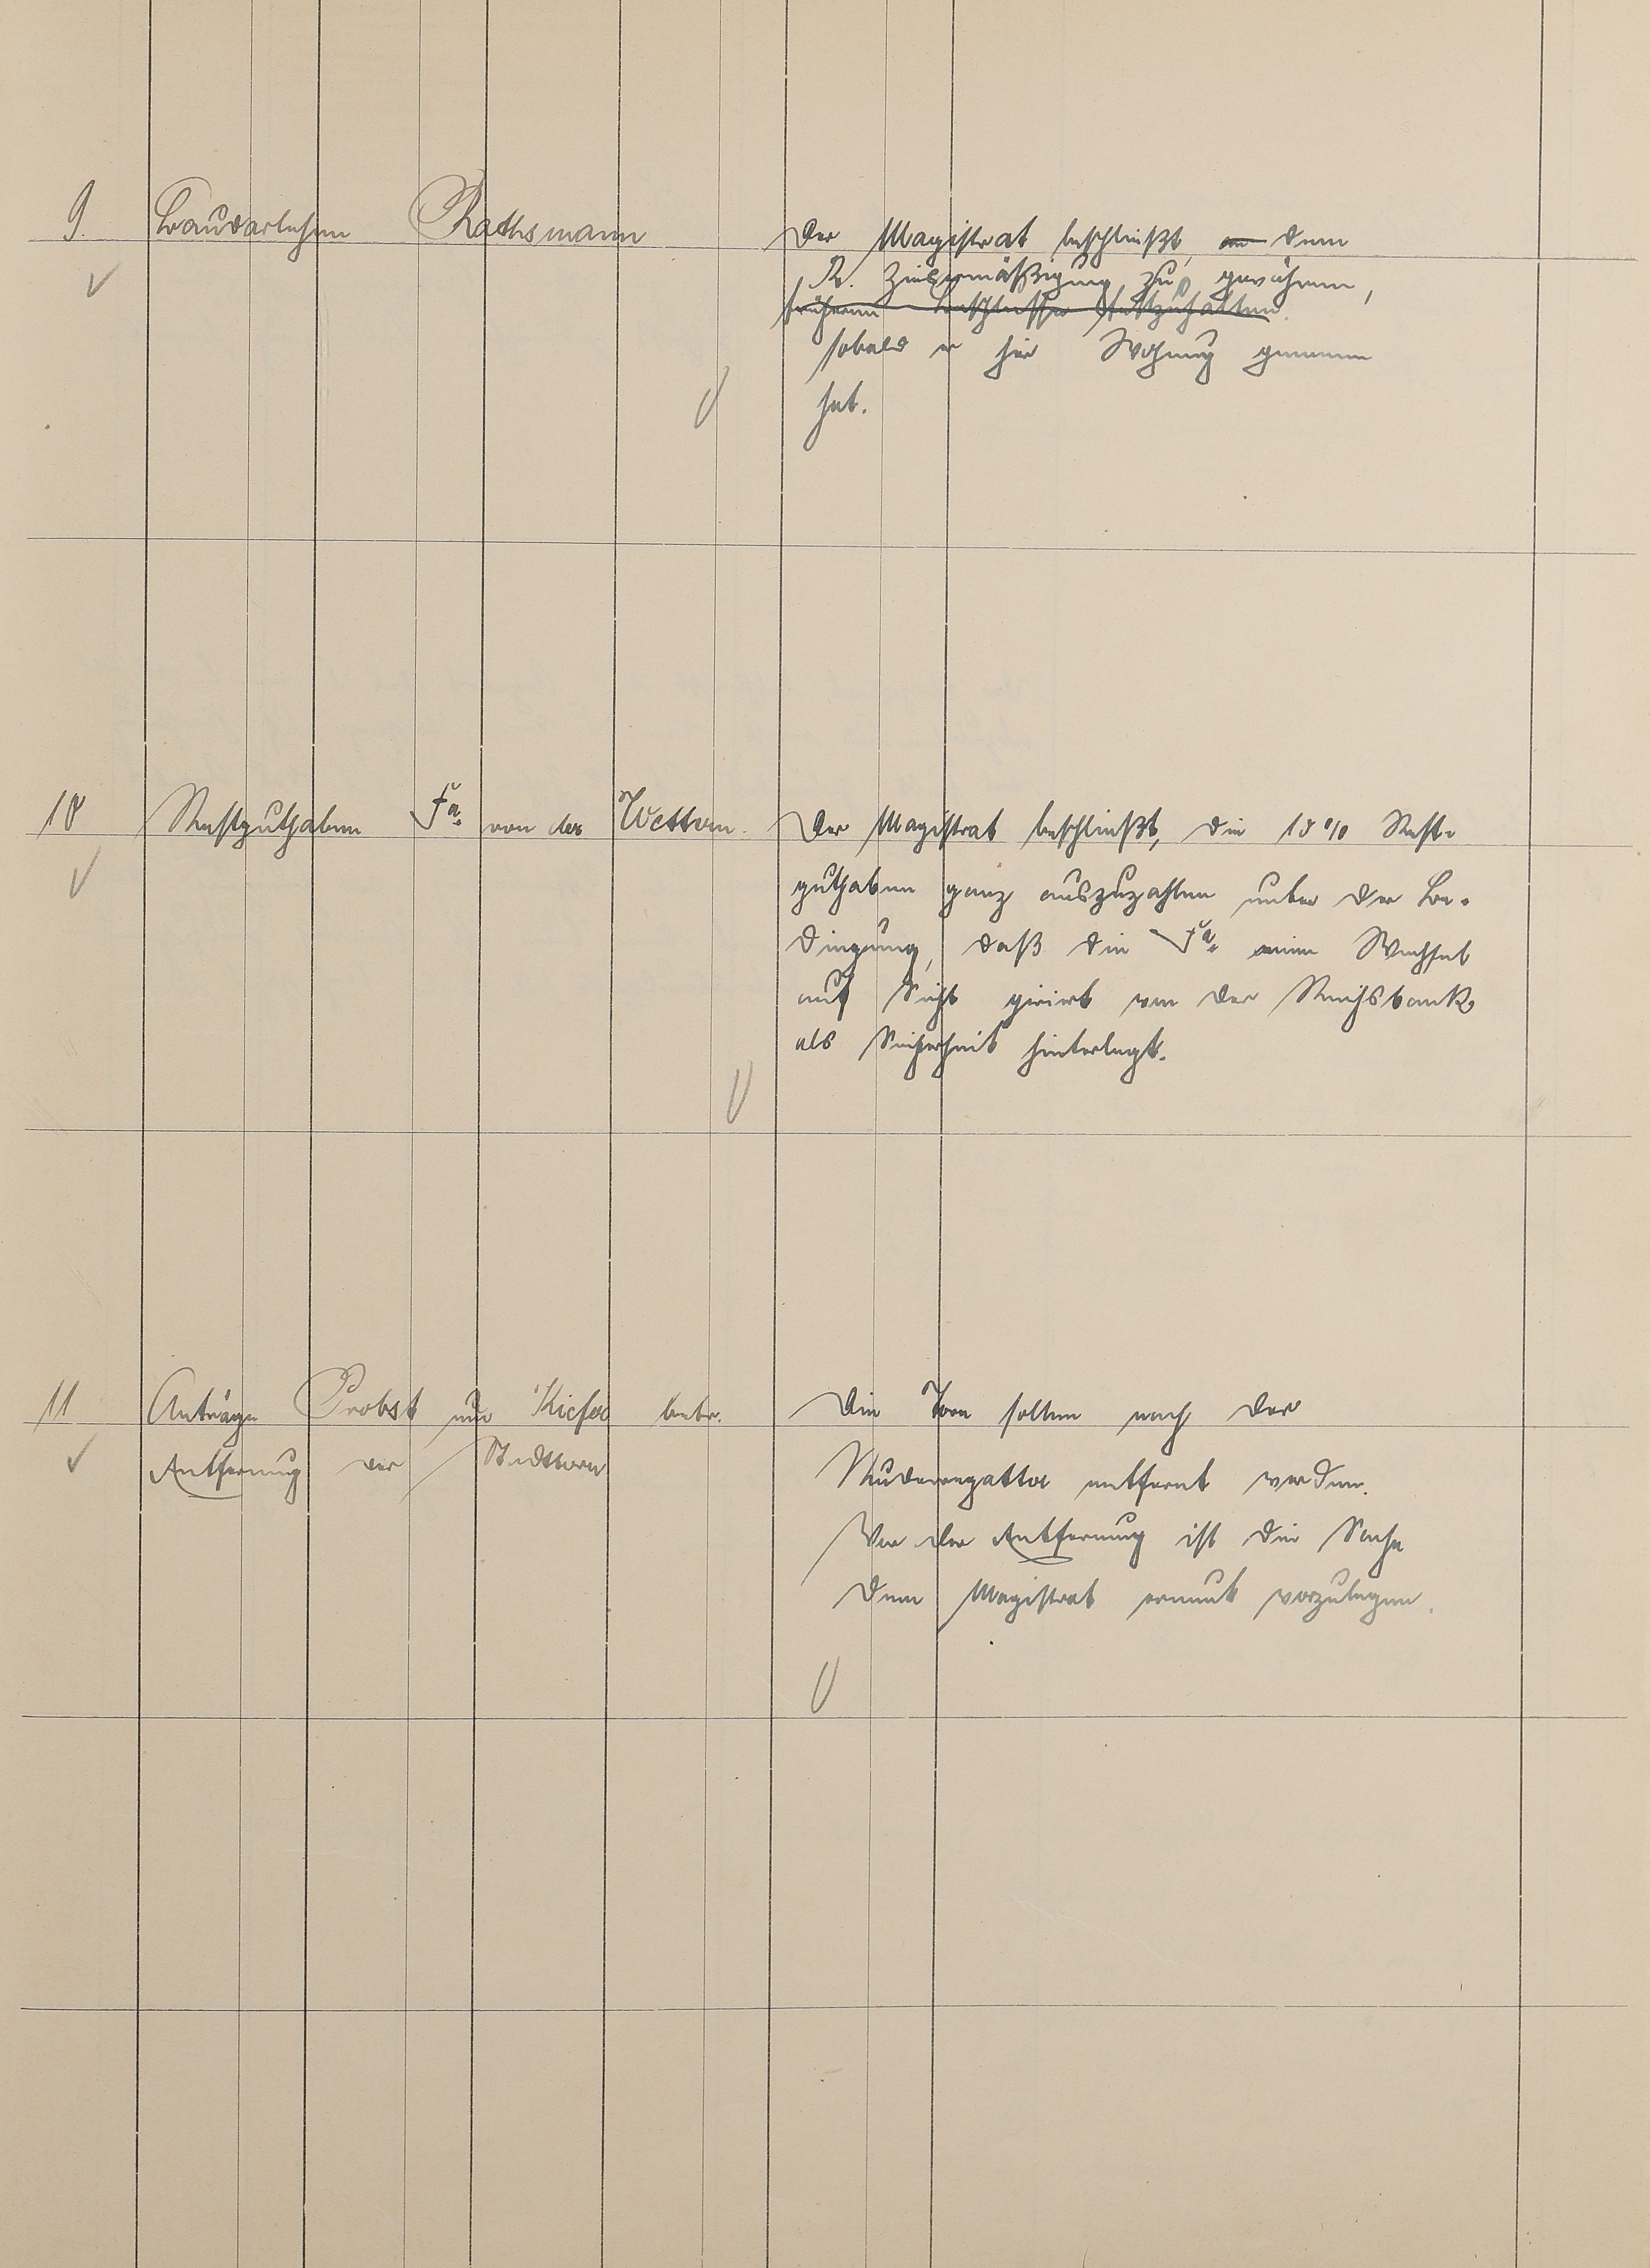 9. Baudarlehen Rathsmann
Der Magistrat beschließt, an dem
R. Zinsermäßigung zu gewähren,
früheren Beschlusse festzuhalten.
sobald er hier Wohnung genommen
hat.
10 Restguthaben Fa. von der Wettern.
Der Magistrat beschließt, die 10% Rest-
guthaben ganz auszuzahlen unter der Be-
dingung, daß die Fa. einen Wechsel
auf Sicht girirt von der Reichsbank
als Sicherheit hinterlegt.
11 Anträge Probst und Kiefer betr.
Entfernung der Stadttore
Die Tore sollen nach der
Ruderregatta entfernt werden.
Vor der Entfernung ist die Sache
dem Magistrat erneut vorzulegen.